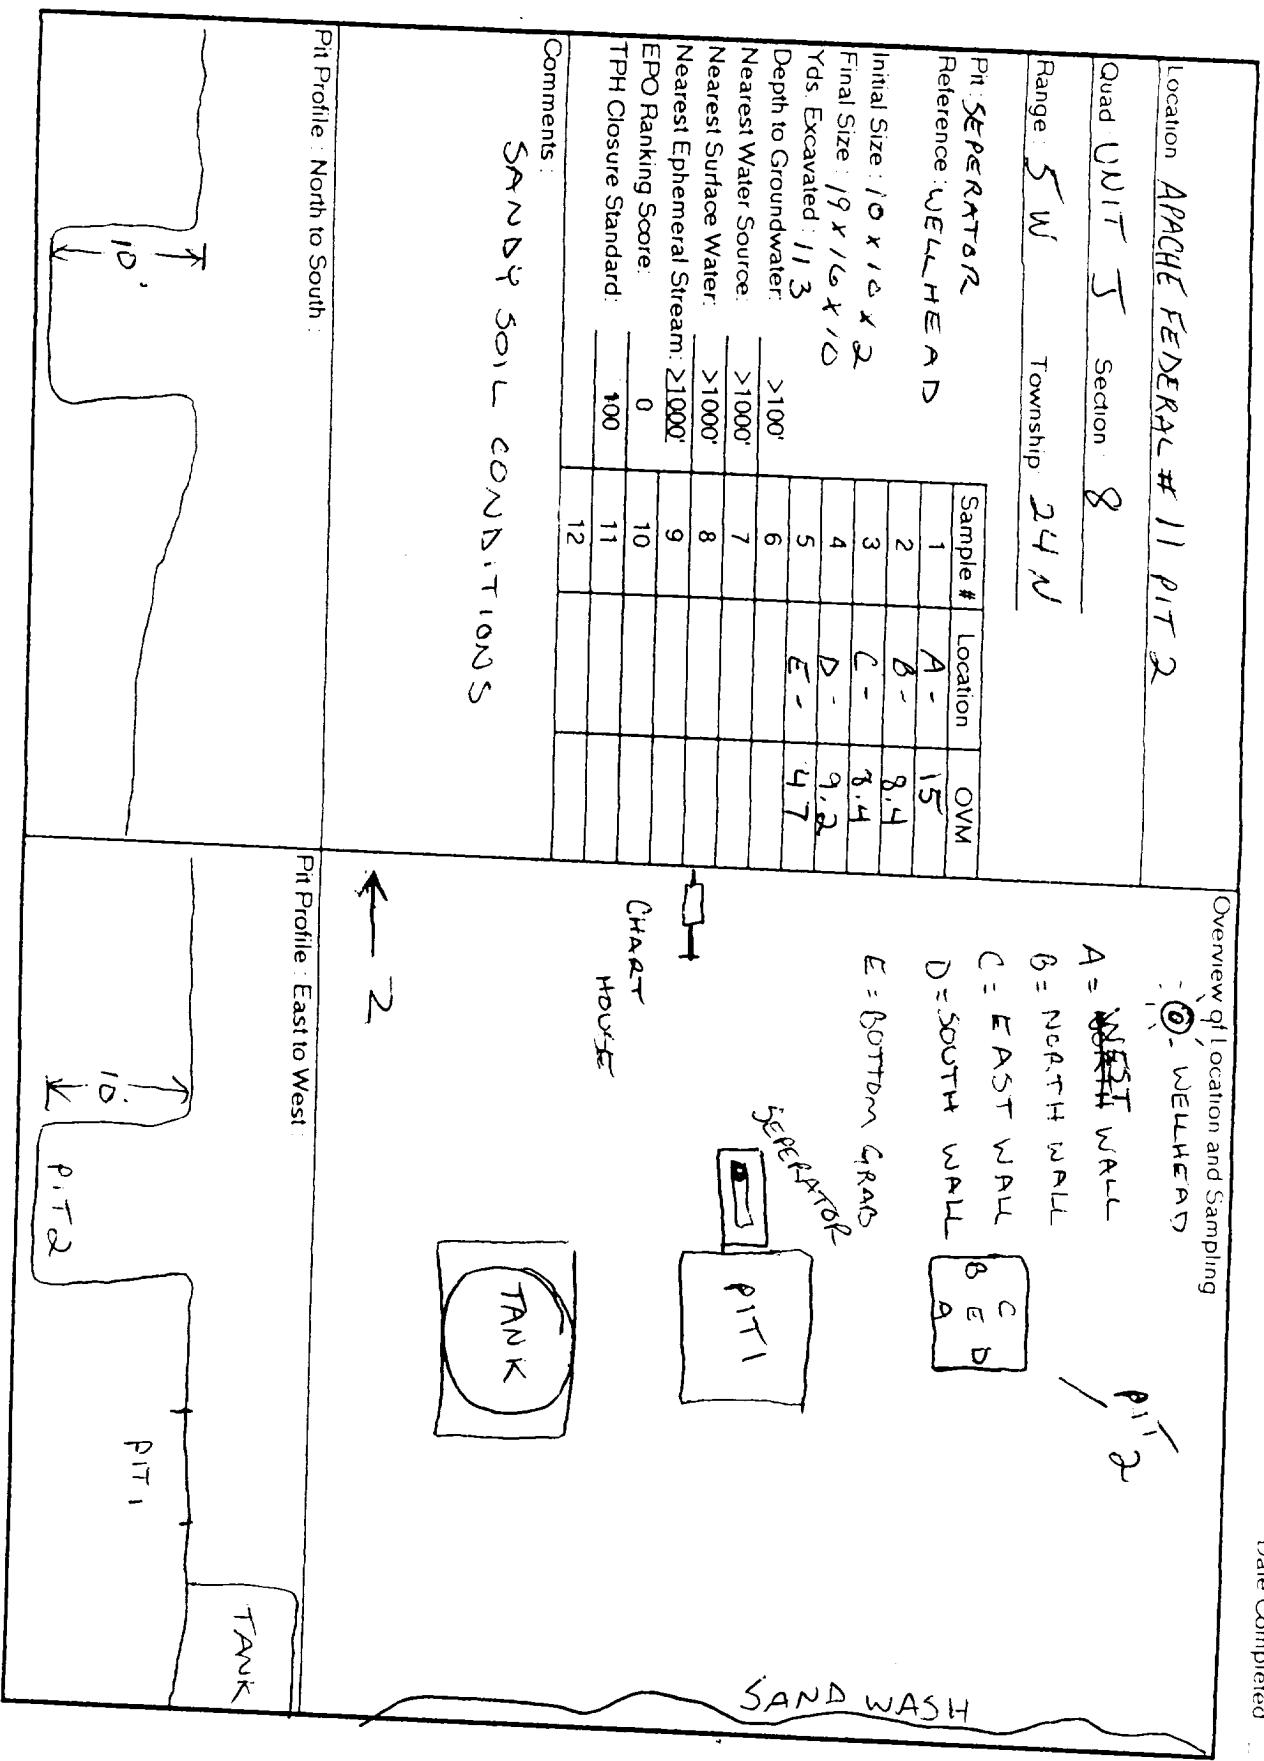 Date Completed
Location APACHE FEDERAL # 11 PIT 2
Quad UNIT J Section 8
Range: 5 W Township 24 N
Pit: SEPERATOR
Reference: WELLHEAD
Initial Size: 10 x 10 x 2
Final Size: 19 x 16 x 10
Yds. Excavated: 113
Depth to Groundwater: >100'
Nearest Water Source: >1000'
Nearest Surface Water: >1000'
Nearest Ephemeral Stream: >1000'
EPO Ranking Score: 0
TPH Closure Standard: 100
Sample # Location OVM
1 A - 15
2 B - 8.4
3 C - 8.4
4 D - 9.2
5 E - 47
6
7
8
9
10
11
12
Comments:
SANDY SOIL CONDITIONS
Overview of Location and Sampling
WELLHEAD
A = WEST WALL
B = NORTH WALL
C = EAST WALL
D = SOUTH WALL
E = BOTTOM GRAB
C
B E D
A
PIT 2
SEPERATOR
PIT 1
CHART
HOUSE
TANK
N
SAND WASH
Pit Profile: North to South:
10'
Pit Profile: East to West:
10'
PIT 2
PIT 1
TANK